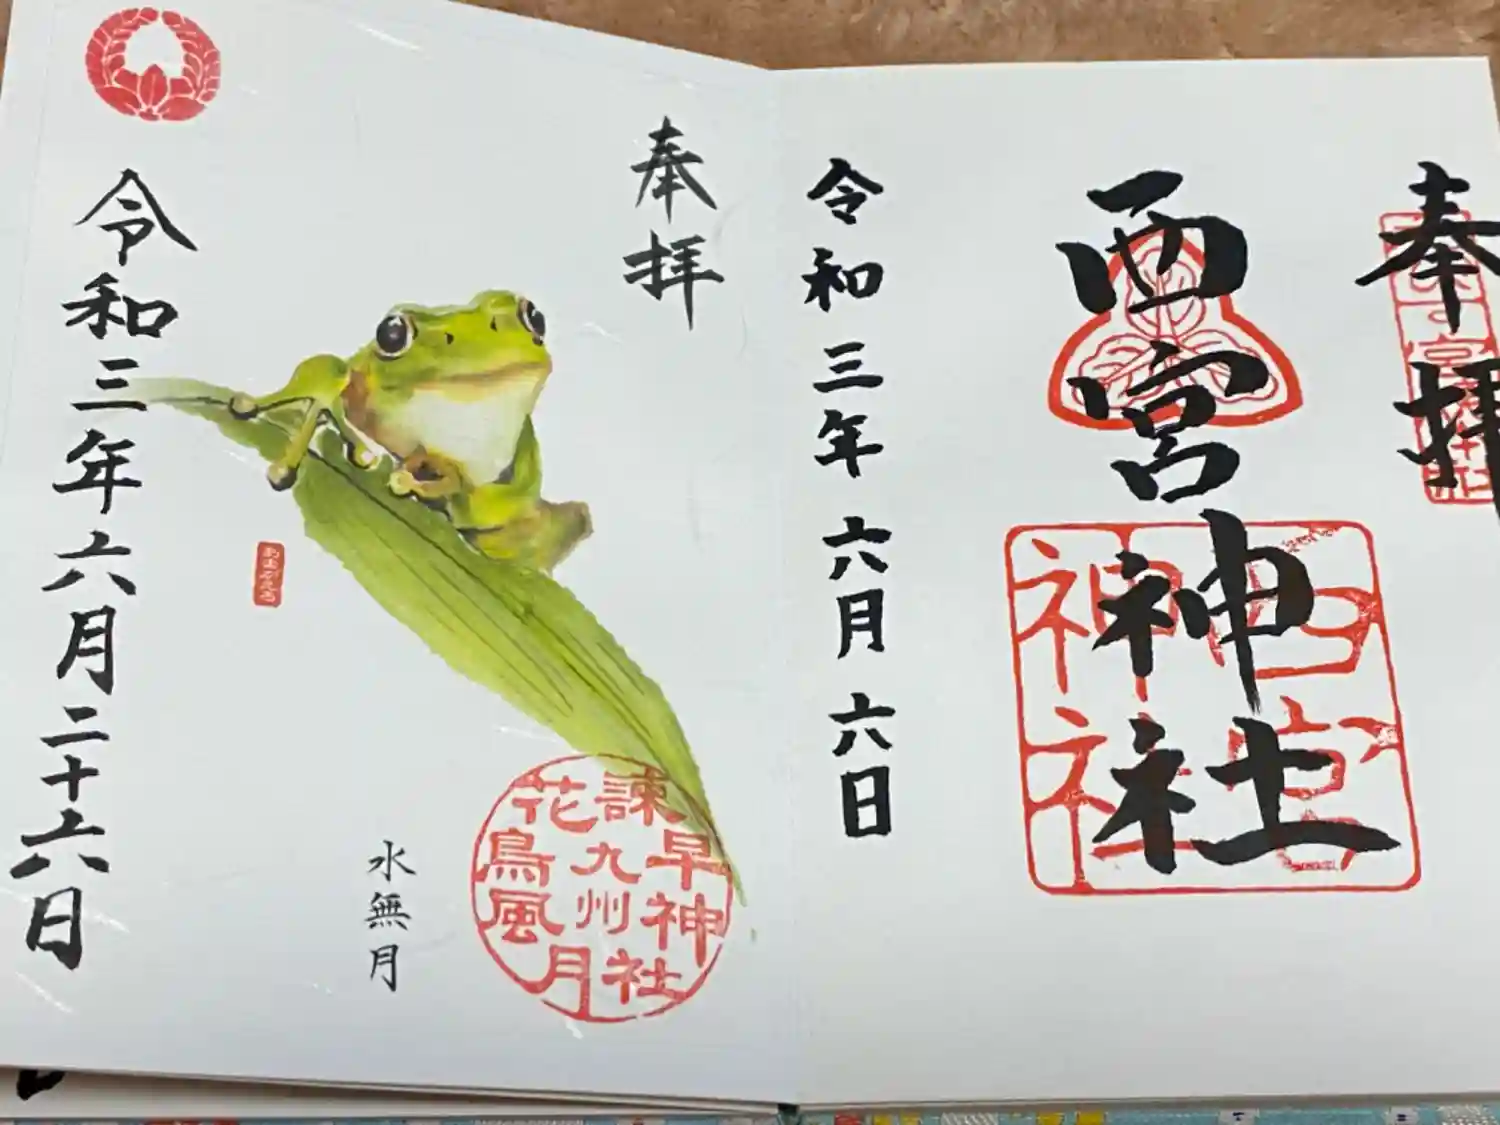 奉拝
西宮神社
令和三年六月六日
西宮神社
奉拝
諫早神社
九州
花鳥風月
水無月
令和三年六月二十六日